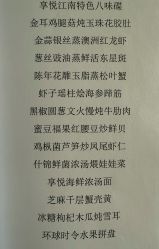 享悦江南特色八味碟
金耳鸡腿菇炖玉珠花胶肚
金蒜银丝蒸澳洲红龙虾
葱丝豉油蒸鲜活东星斑
陈年花雕玉脂蒸松叶蟹
虾子瑶柱烩海参蹄筋
黑椒圆葱文火慢炖牛肋肉
蜜豆福果红腰豆炒鲜贝
鸡枞菌芦笋炒凤尾虾仁
什锦鲜菌浓汤煨娃娃菜
享悦海鲜浓汤面
芝麻千层蟹壳黄
冰糖枸杞木瓜炖雪耳
环球时令水果拼盘